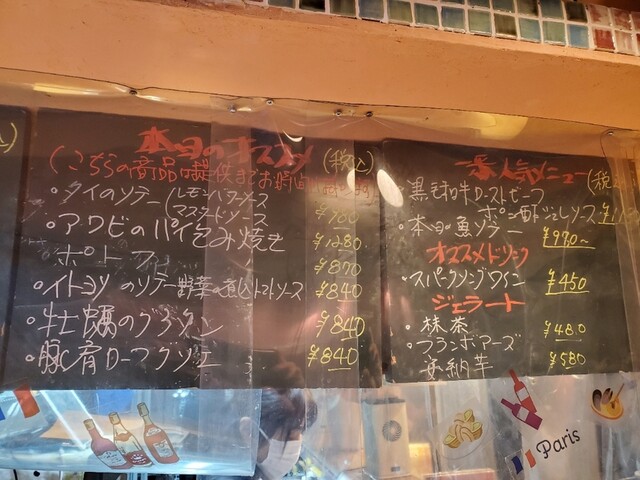 本日のオススメ (税込)
(こちらの商品は提供までお時間
・タイのソテー (レモンバターソース
マスタードソース ¥700
・アワビのパイ包み焼き ¥1280
ポトフ ¥870
・イトヨリのソテー 野菜の煮込トマトソース ¥840
・牡蠣のグラタン ¥840
・豚肩ロース ¥840
一番人気メニュー (税
・黒毛和牛ローストビーフ
ポン酢ジュレソース
・本日の魚ソテー ¥970~
オススメドリンク
・スパークリングワイン ¥450
ジェラート
・抹茶 ¥480
・フランボアーズ
安納芋 ¥580
Paris